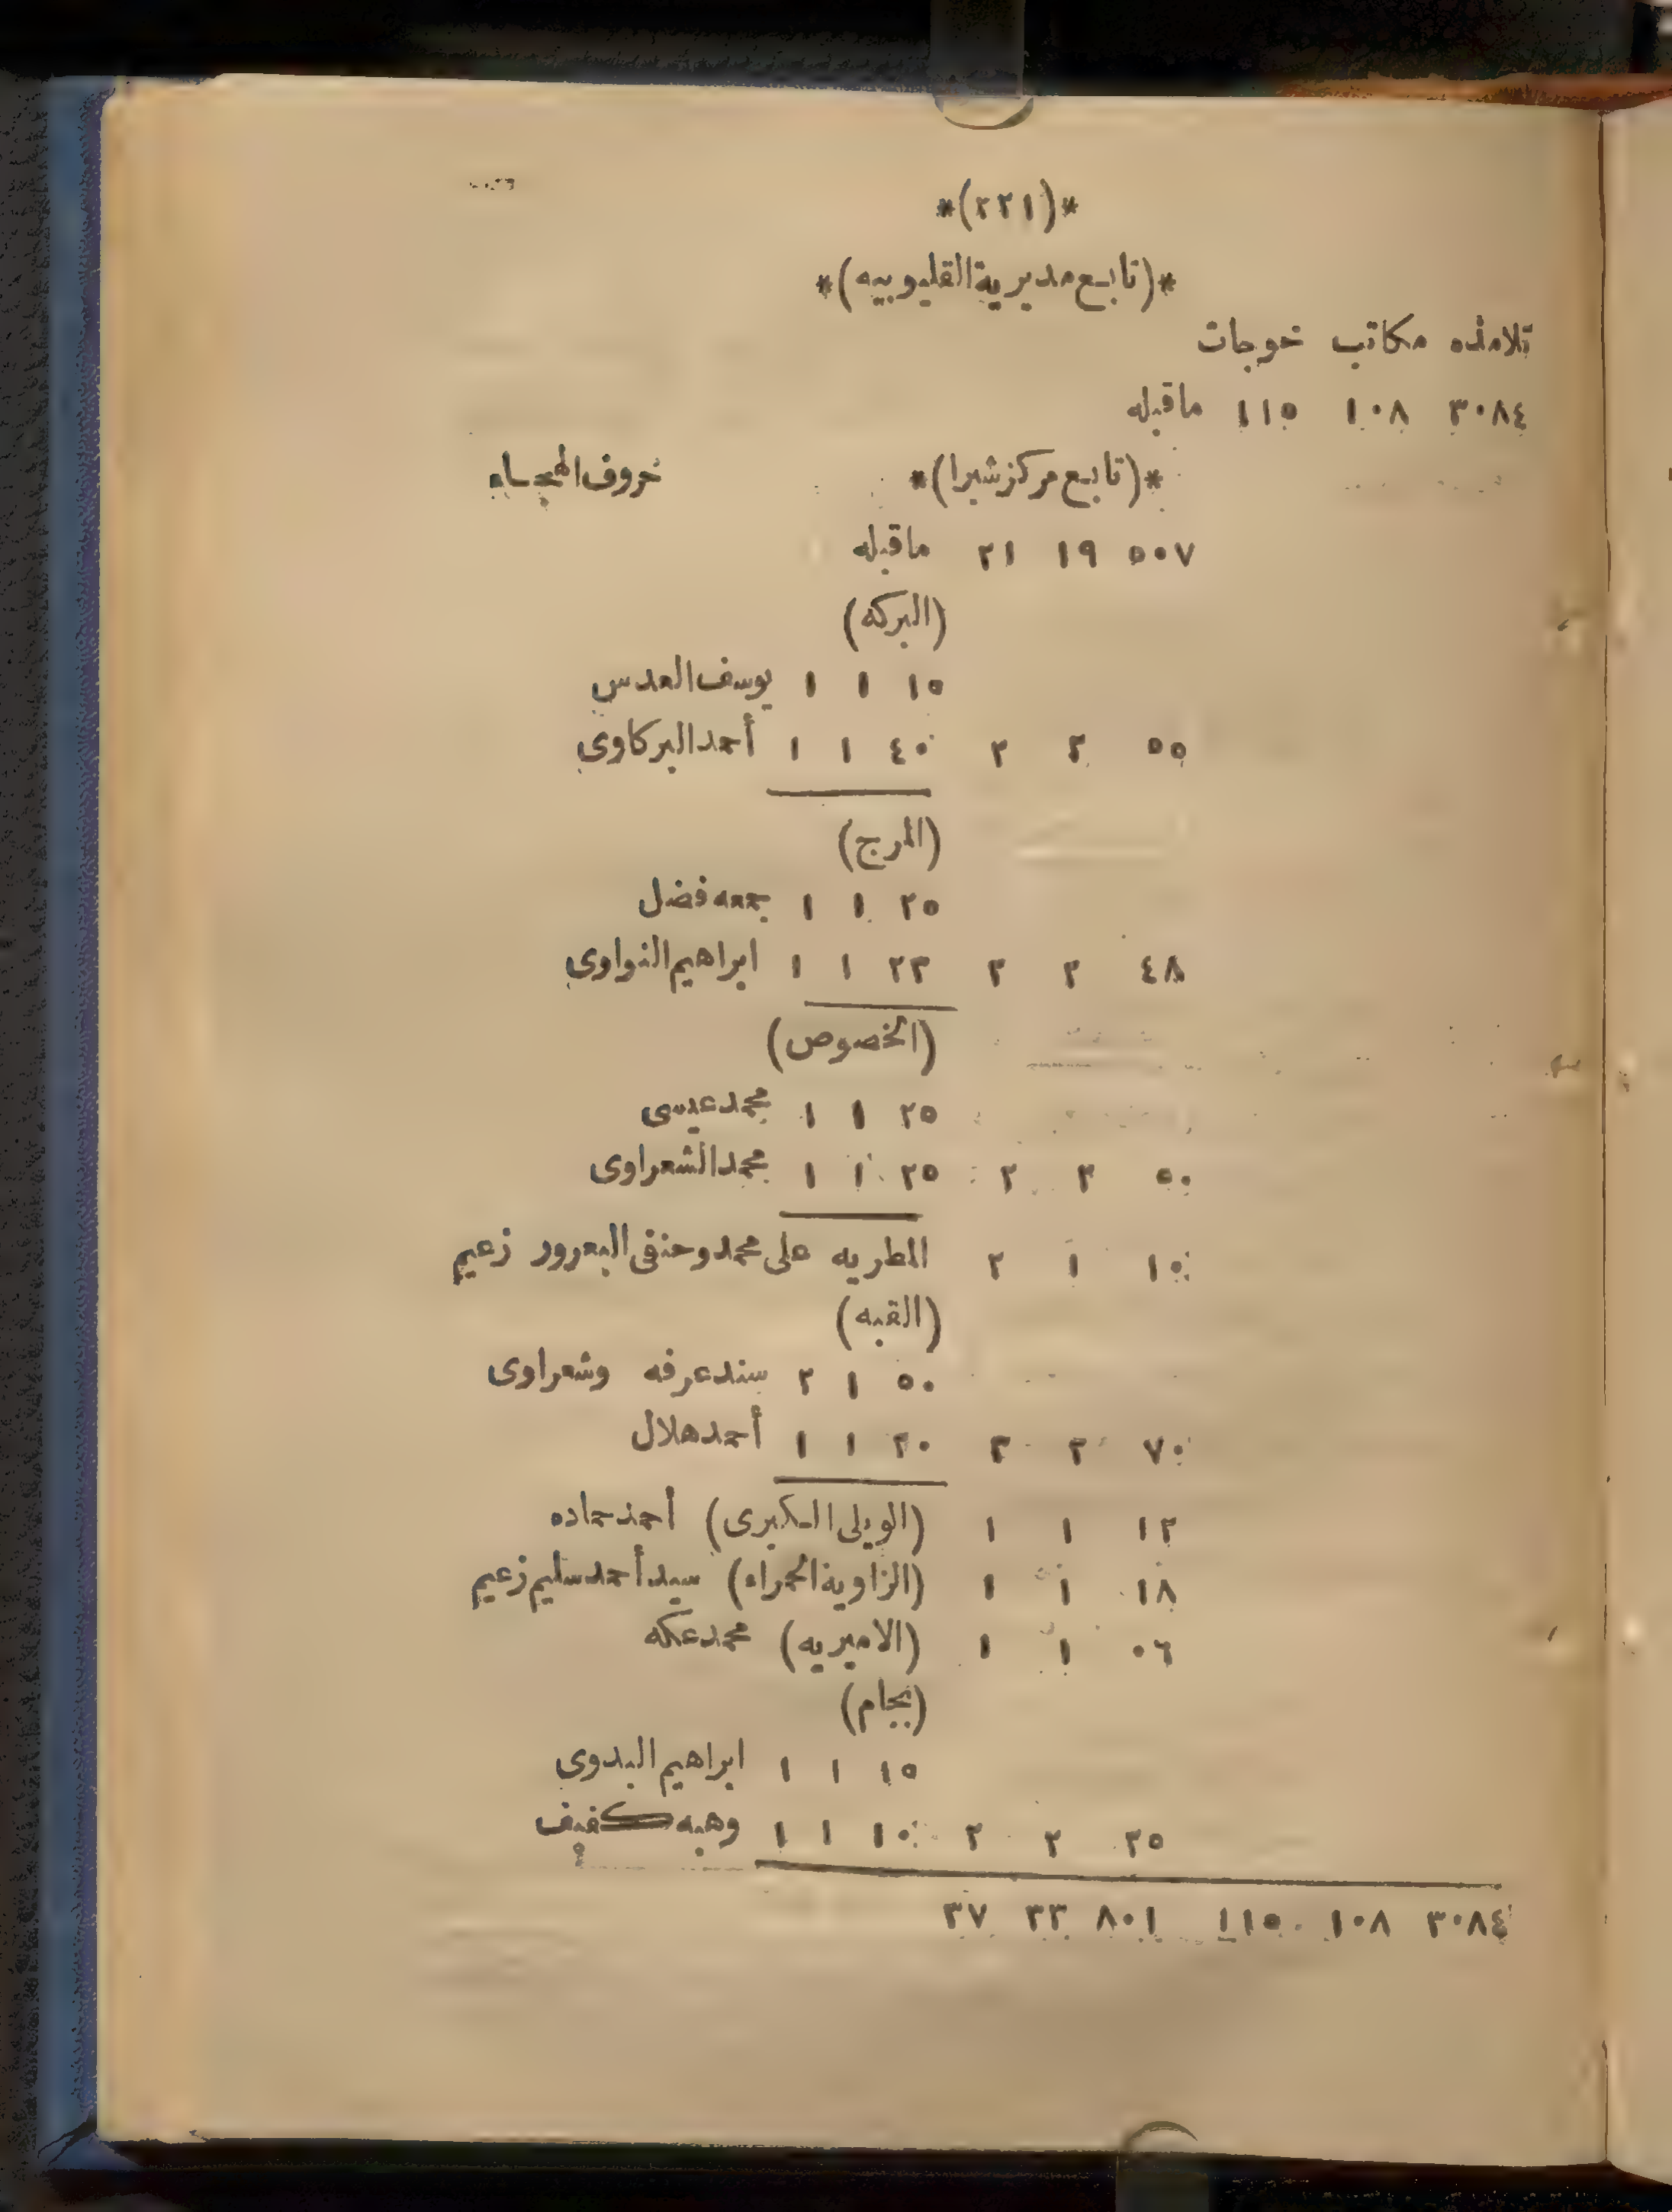 *(٢٢١)*
*(تابع مديرية القليوبيه)*
تلامذه مكاتب خوجات
٣٠٨٤ ١٠٨ ١١٥ ماقبله
*(تابع مركز شبرا)* حروف الهجاء
٥٠٧ ١٩ ٢١ ماقبله
(البركه)
١٥ ١ ١ يوسف العدس
٥٥ ٢ ٢ ٤٠ ١ ١ أحمد البركاوى
(المرج)
٢٥ ١ ١ جمعه فضل
٤٨ ٢ ٢ ٢٣ ١ ١ ابراهيم النواوى
(الخصوص)
٢٥ ١ ١ محمد عيسى
٥٠ ٢ ٢ ٢٥ ١ ١ محمد الشعراوى
١٠ ١ ٢ المطريه على محمد وحنفى البعرور زعيم
(القبه)
٥٠ ١ ٢ سند عرفه وشعراوى
٧٠ ٢ ٣ ٢٠ ١ ١ أحمد هلال
١٢ ١ ١ (الويلى الكبرى) أحمد حماده
١٨ ١ ١ (الزاوية الحمراء) سيد أحمد سليم زعيم
٠٦ ١ ١ (الاميريه) محمد عكه
(بجام)
١٥ ١ ١ ابراهيم البدوى
٢٥ ٢ ٢ ١٠ ١ ١ وهبه كفيف
٣٠٨٤ ١٠٨ ١١٥ ٨٠١ ٣٣ ٣٧